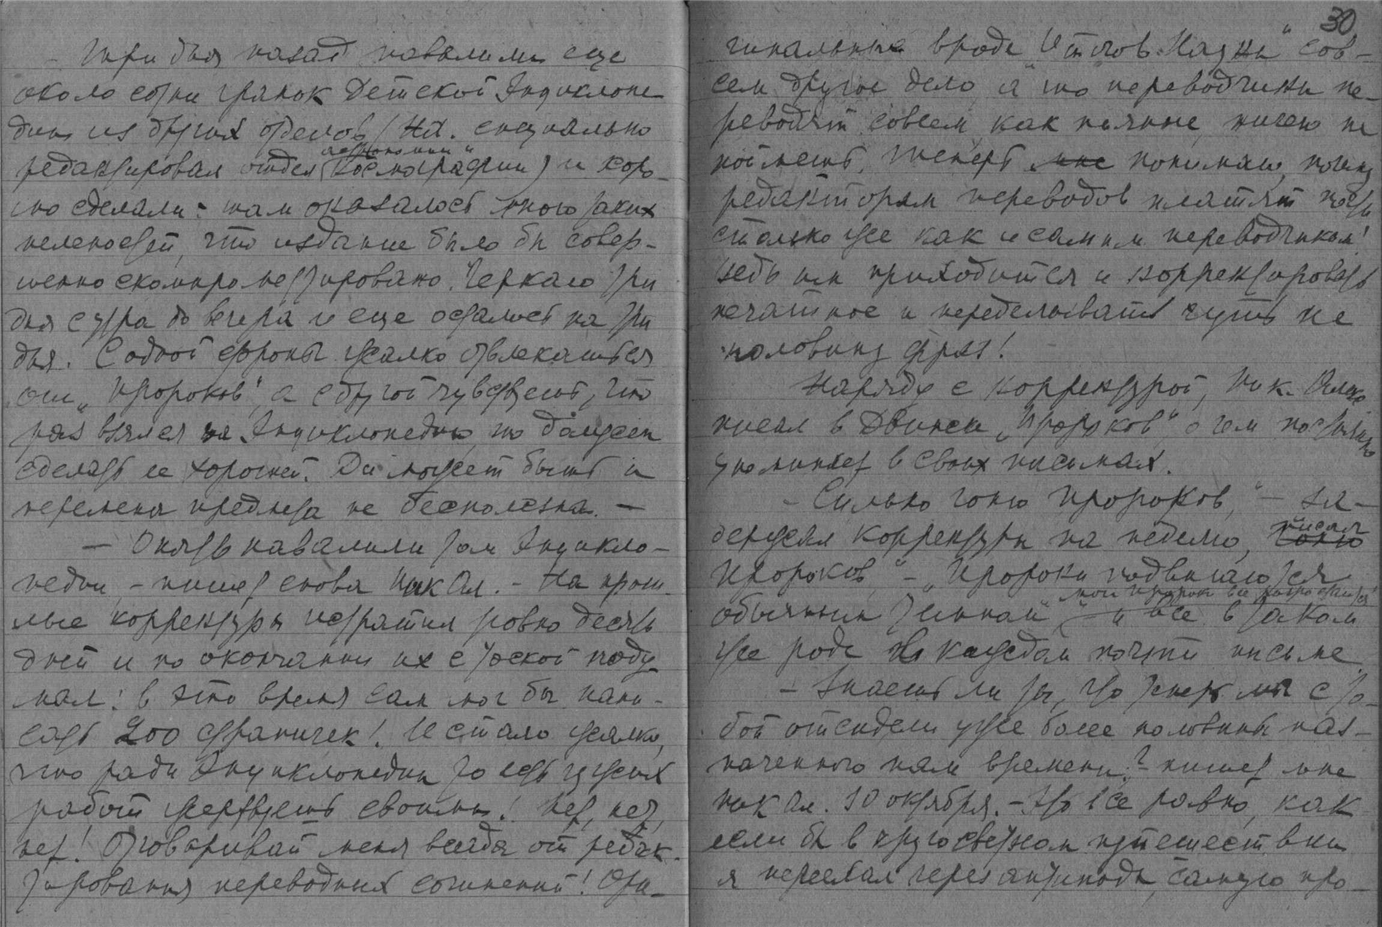 Три дня назад навалили еще
около сотни гранок Детской Энциклопе-
дии из других отделов (Н.А. специально
редактировал отдел "астрономии"
Космографии) и хоро-
шо сделали: там оказалось много таких
нелепостей, что издание было бы совер-
шенно скомпрометтировано. Черкаю три
дня с утра до вечера и еще осталось на три
дня. С одной стороны жалко отвлекаться
от "Пророков", а с другой чувствуешь, что
раз взялся за Энциклопедию, то должен
сделать ее хорошей. Да может быть и
перемена предмета не бесполезна. —
— Опять навалили том Энцикло-
педии, - пишет снова Ник Ал. - На прош-
лые корректуры истратил ровно десять
дней и по окончании их с тоской поду-
мал: в это время сам мог бы напи-
сать 200 страничек! И стало жалко,
что ради Энциклопедии, то есть чужих
работ жертвуешь своими! Нет, нет,
нет! Отговаривай меня всегда от редак-
тирования переводных сочинений! Ори-
30
гинальные вроде "Итогов Науки" сов-
сем другое дело а то переводчики пе-
реводят совсем как пьяные, ничего не
поймешь. Теперь мне понимаю, почему
редакторам переводов платят почти
столько же как и самим переводчикам!
Ведь им приходится и корректировать
печатное и переделывать чуть не
половину фраз!
Наряду с корректурой, Ник. Алек.
писал в Двинске "Пророков" о чем постоянно
упоминает в своих письмах.
- Сильно гоню "Пророков," — за-
держал корректуры на неделю, писал
гоню
"Пророков" - "Пророки подвигаются
мои пророки все разрастаются
обычным темпом" - и все в таком
же роде в каждом почти письме.
- Знаешь ли ты, что теперь мы с то-
бой отсидели уже более половины наз-
наченного нам времени? - пишет мне
Ник Ал. 10 октября. - Это все равно, как
если бы в кругосветном путешествии
я переехал через антиподы, самую про-